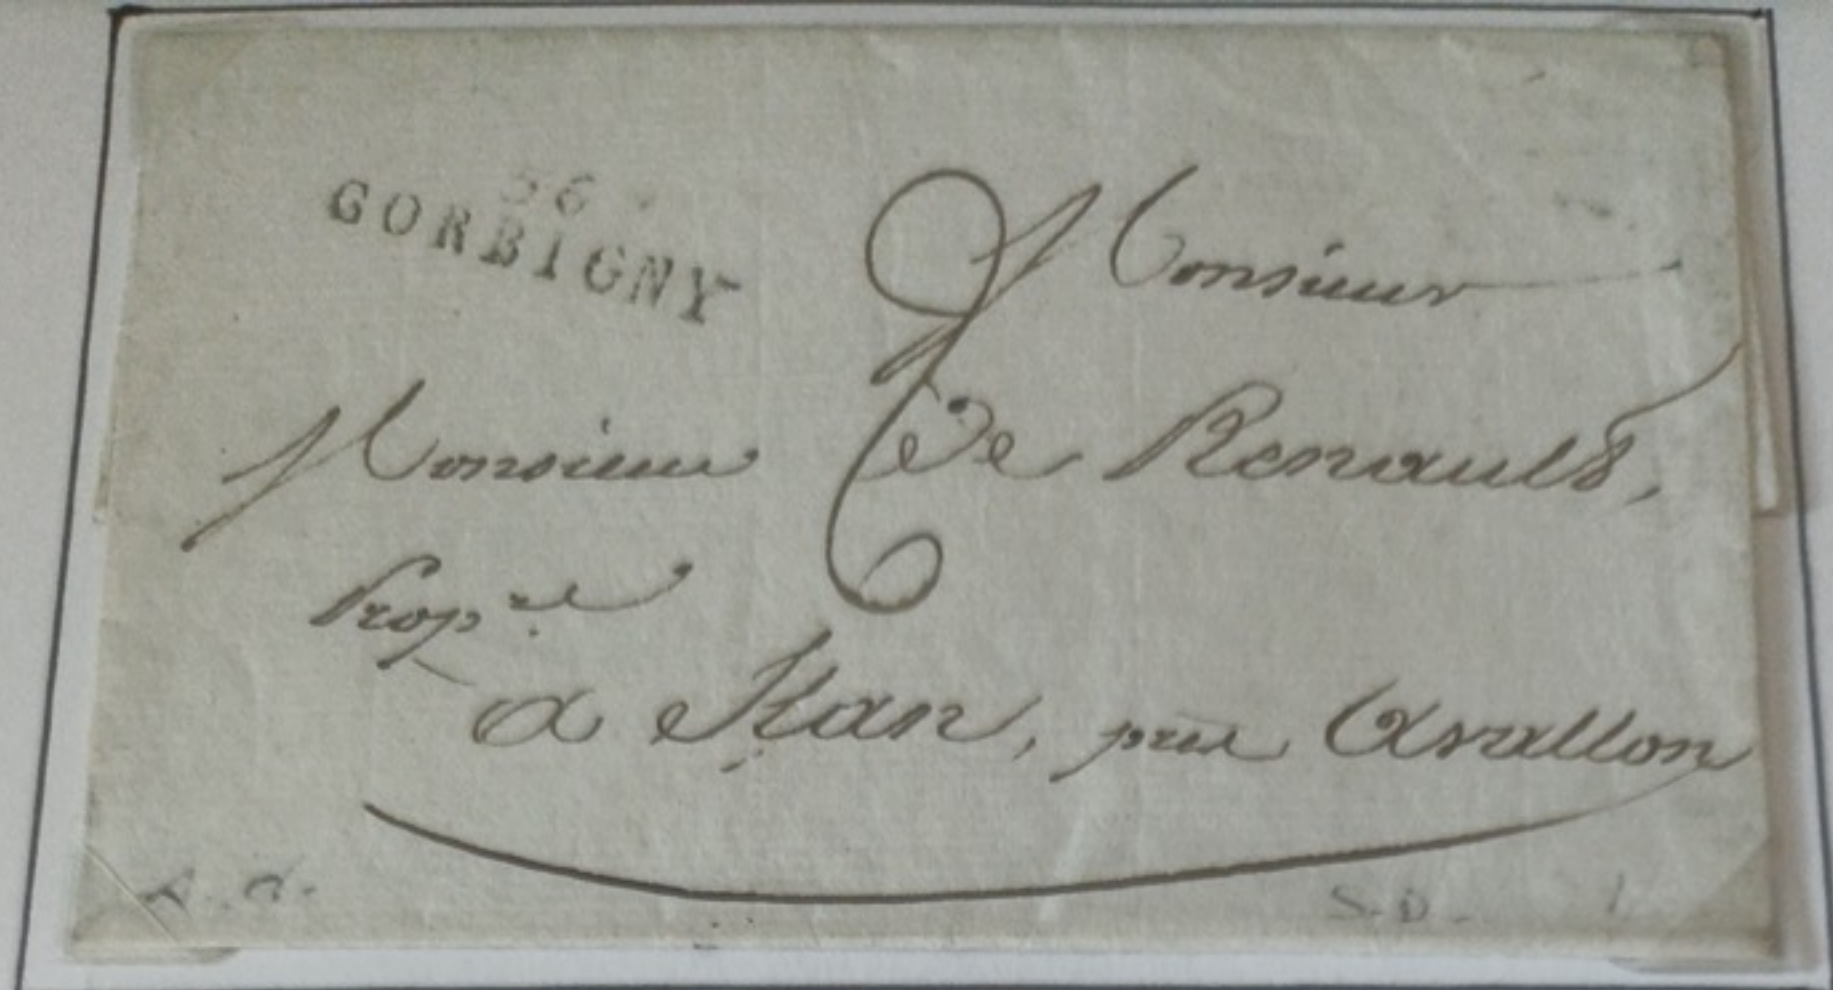 56
CORBIGNY
Monsieur
Monsieur De Renault,
Prop.re
a Ran, près Avallon
S.D.